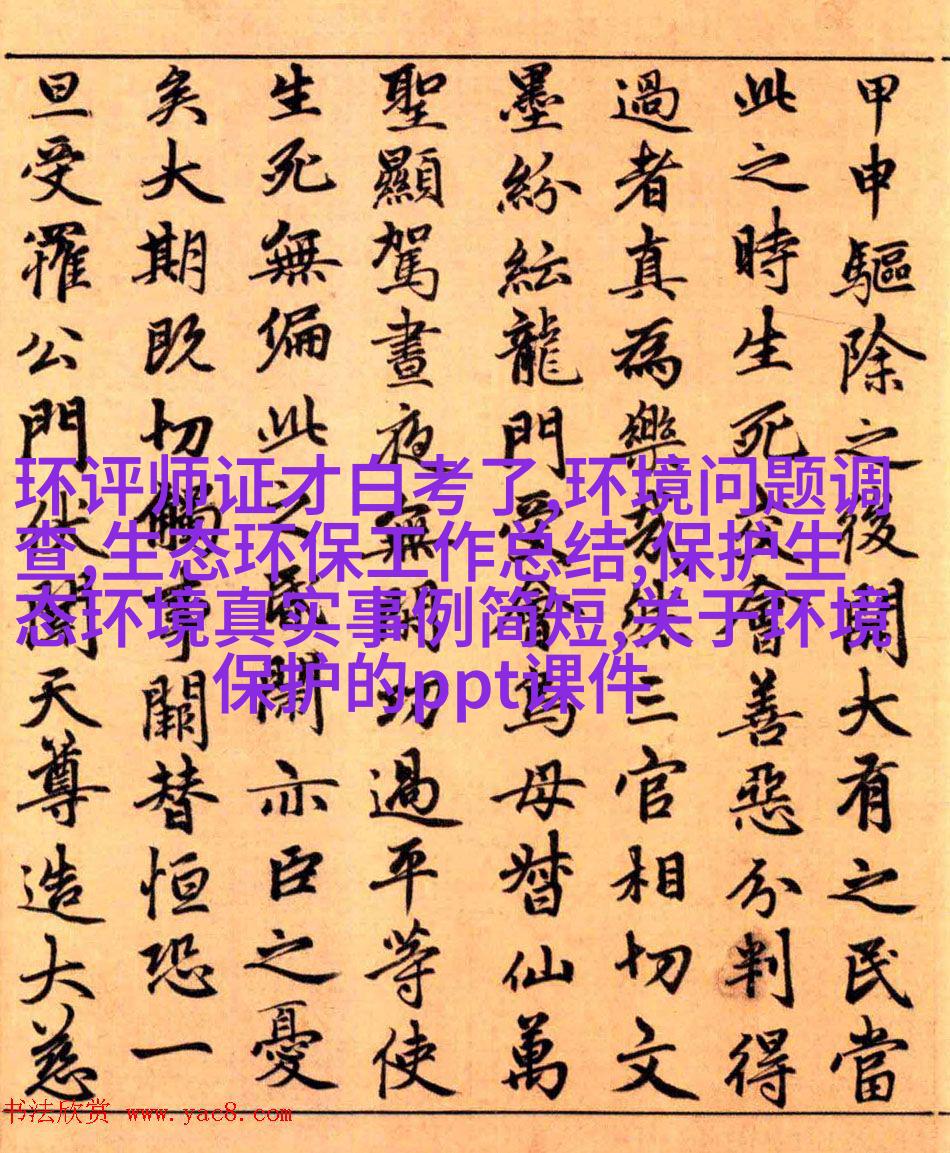 甲申驅除之後開大有之民當
此之時生死交會善惡分判得
過者真為樂哉然三官相切文
墨紛紜龍門受會鳥母督仙萬
聖顯駕晝夜無閒功過平等使
生死無偏此之昏鬧亦臣之憂
矣大期既切觸事闕替恒恐一
旦受罹公門伏聞天尊造大慈
环评师证才白考了,环境问题调
查,生态环保工作总结,保护生
态环境真实事例简短,关于环境
保护的ppt课件
书法欣赏 www.yac8.com